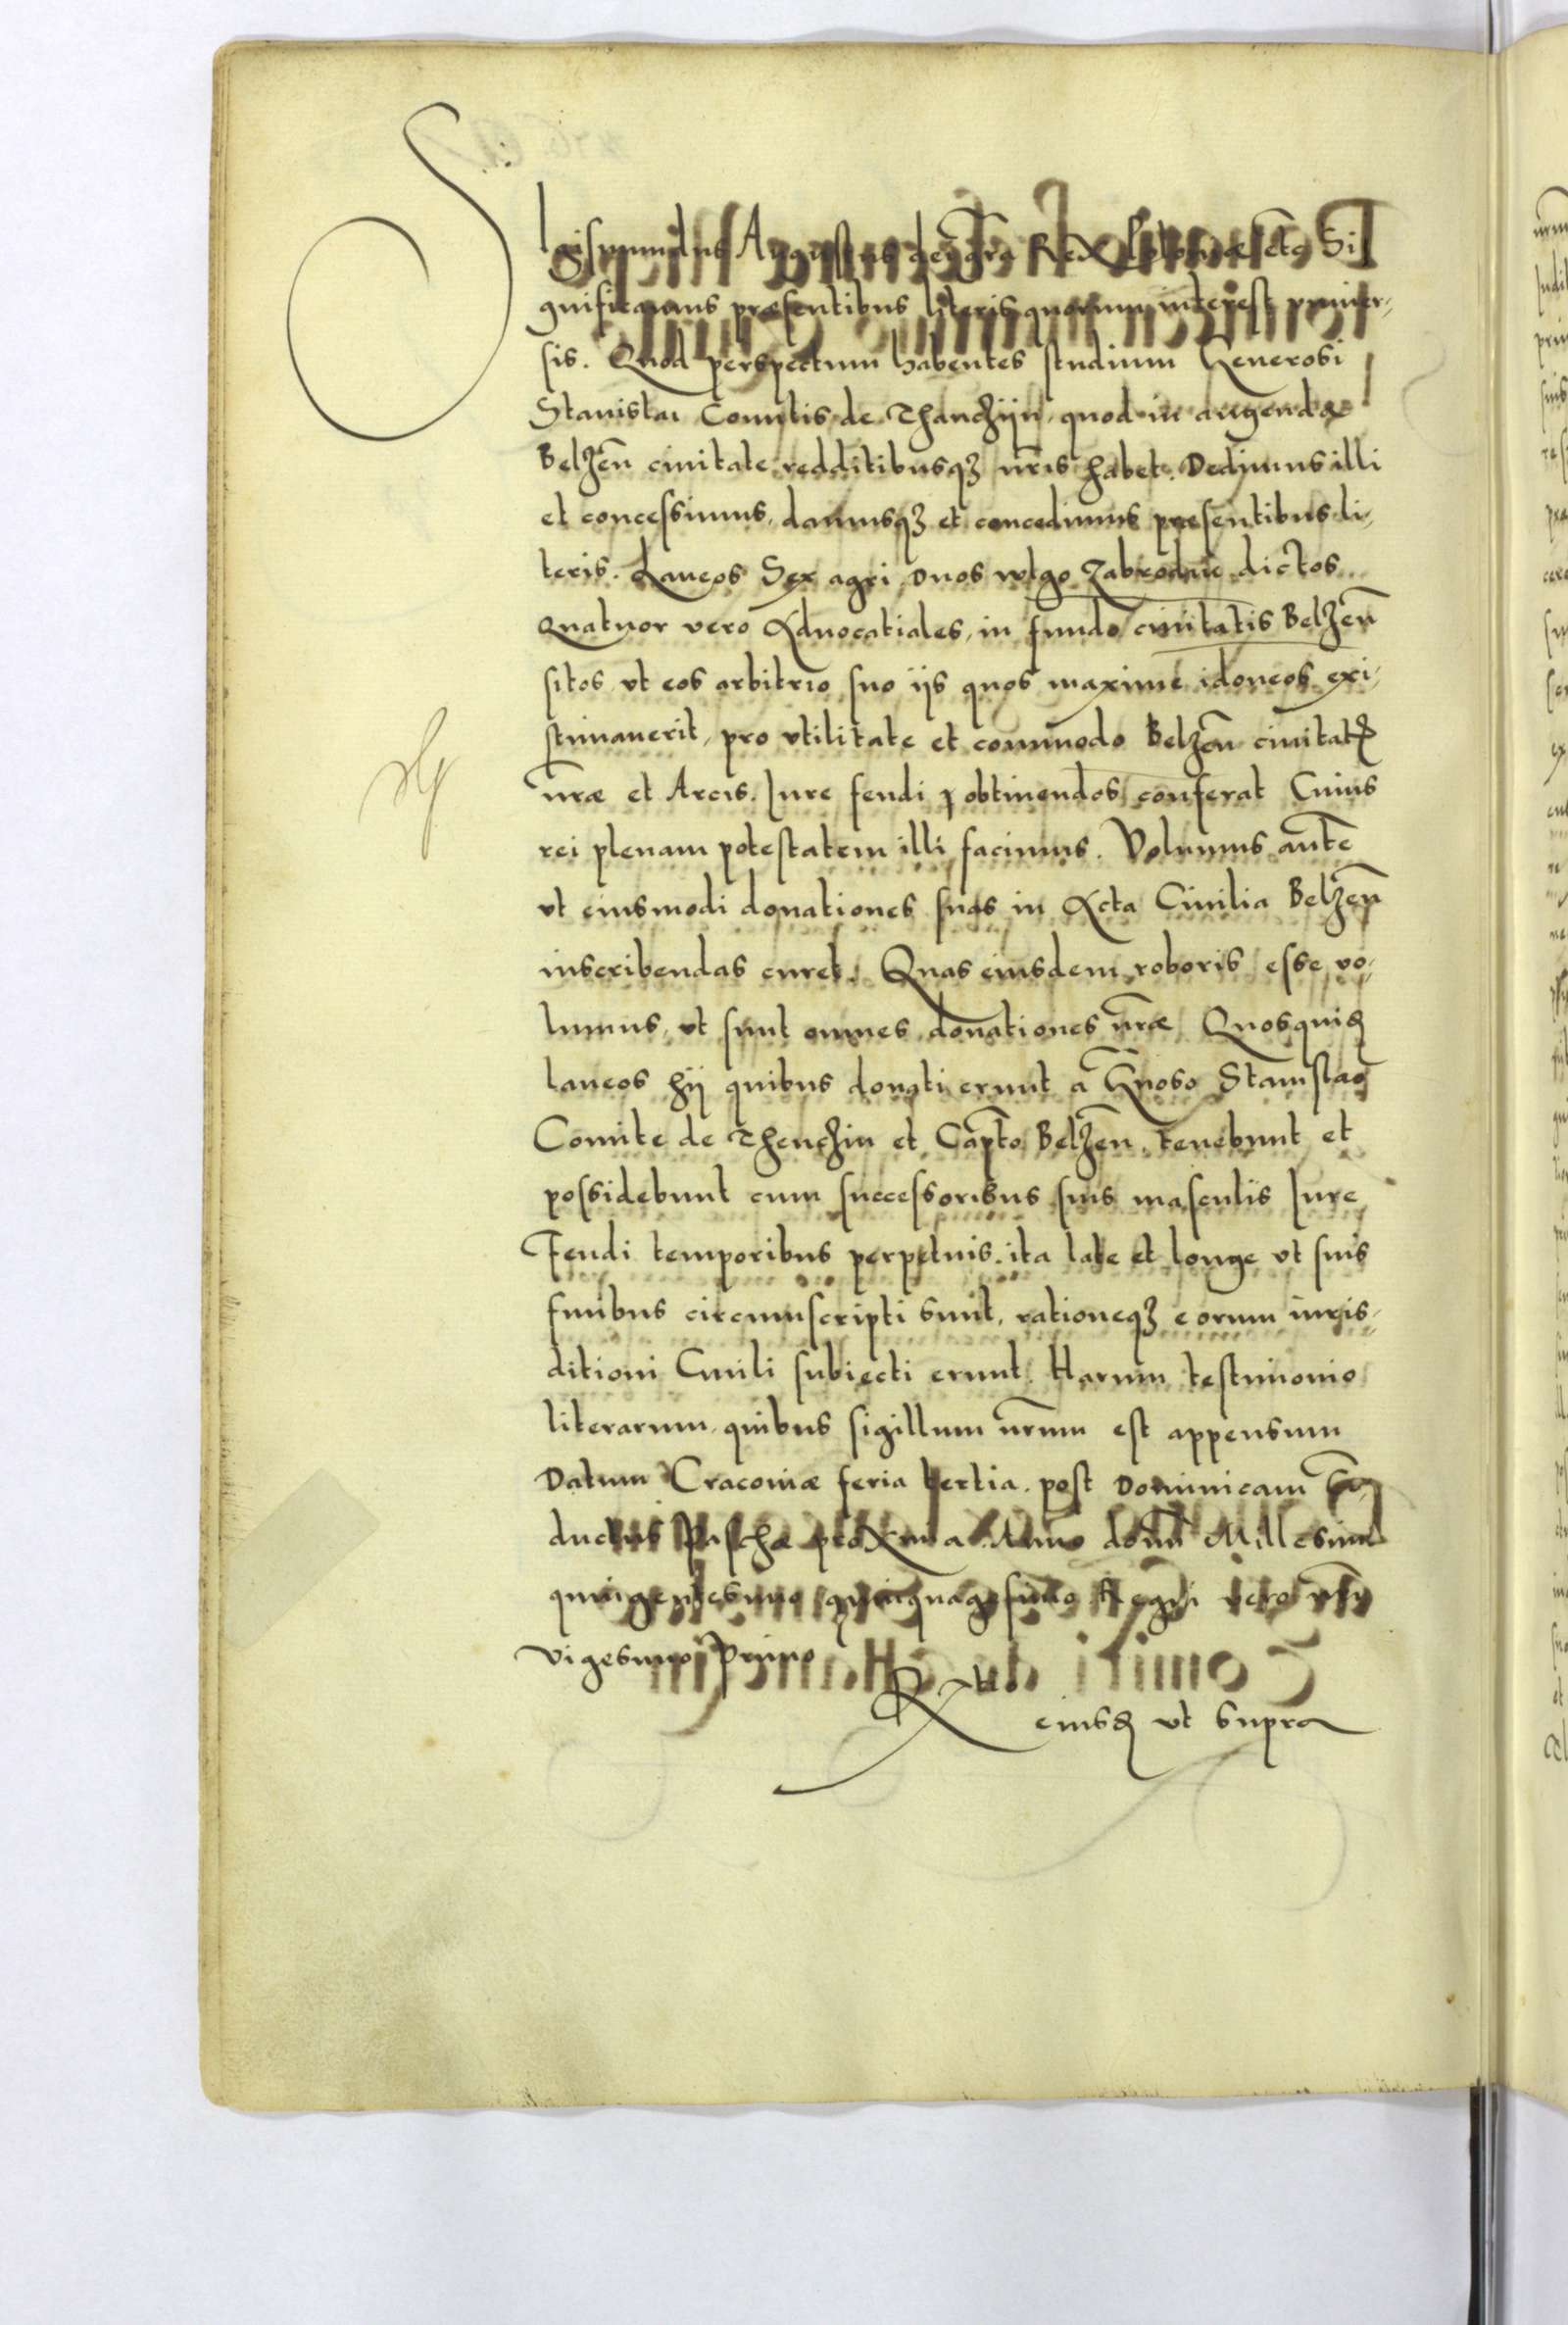 Sigismundus Augustus dei gra Rex Poloniæ etc Si
gnificamus præsentibus literis quorum interest vniuer-
sis. Quod perspectum habentes studium Generosi
Stanislai Comitis de Thanchijn, quod in augenda
Belzen̄ ciuitate redditibusqʒ nr̄is habet. Dedimus illi
et concessimus, damusqʒ et concedimus præsentibus li-
teris. Laneos Sex agri, Duos wlgo Zabrodnie dictos
Quatuor vero Aduocatiales, in fundo ciuitatis Belzen̄
sitos, vt eos arbitrio suo ijs quos maxime idoneos exi-
stimauerit, pro vtilitate et commodo Belzen̄ ciuitatꝭ
nr̄æ et Arcis. Iure feudi ꝑ obtinendos conferat Cuius
rei plenam potestatem illi facimus. Volumus aut̄e
vt eiusmodi donationes suas in Acta Ciuilia Belzen̄
inscribendas curet. Quas eiusdem roboris esse vo-
lumus, vt sunt omnes donationes nr̄æ. Quosquidꝫ
laneos hij quibus donati erunt a Gn̄oso Stanislao
Comite de Thenchin et Capt̄o Belzen̄, tenebunt et
possidebunt cum successoribus suis masculis Iure
Feudi temporibus perpetuis. ita late et longe vt suis
finibus circumscripti sunt, rationeqʒ eorum iuris-
ditioni Ciuili subiecti erunt. Harum testimonio
literarum, quibus sigillum nr̄um est appensum
Datum Cracouiæ feria tertia. post Dominicam
ductus Paschæ proxima Anno domi Millesimo
quingentesimo quinquagesimo Regni vero nr̄i
vigesimo Primo
Rtio
eiusdꝫ vt supra